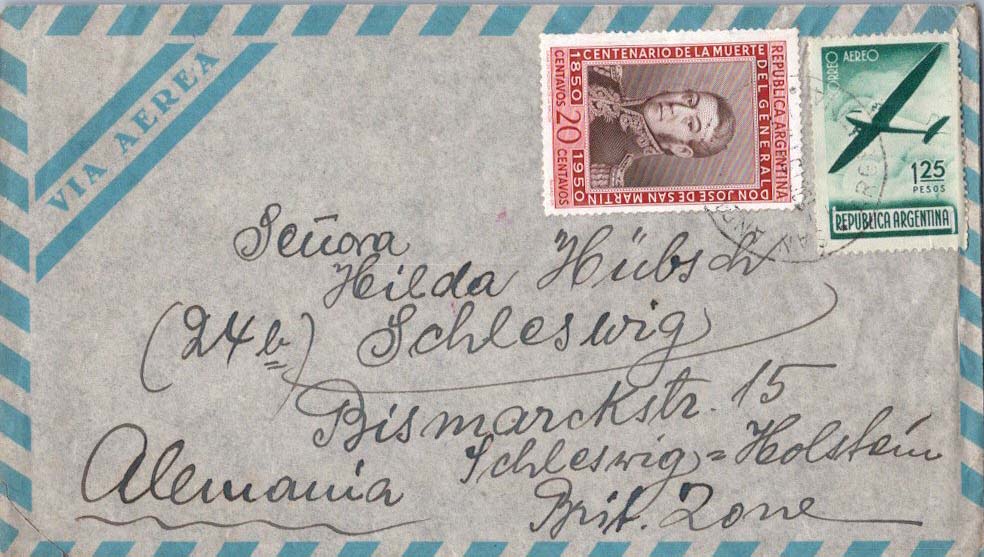 VIA AEREA
REPUBLICA ARGENTINA
CENTENARIO DE LA MUERTE
DEL GENERAL
DON JOSE DE SAN MARTIN
1850 20 1950
CENTAVOS CENTAVOS
CORREO AEREO
1 25
PESOS
REPUBLICA ARGENTINA
Señora
Hilda Hübsch
(24b) Schleswig
Bismarckstr. 15
Schleswig=Holstein
Alemania
Brit. Zone